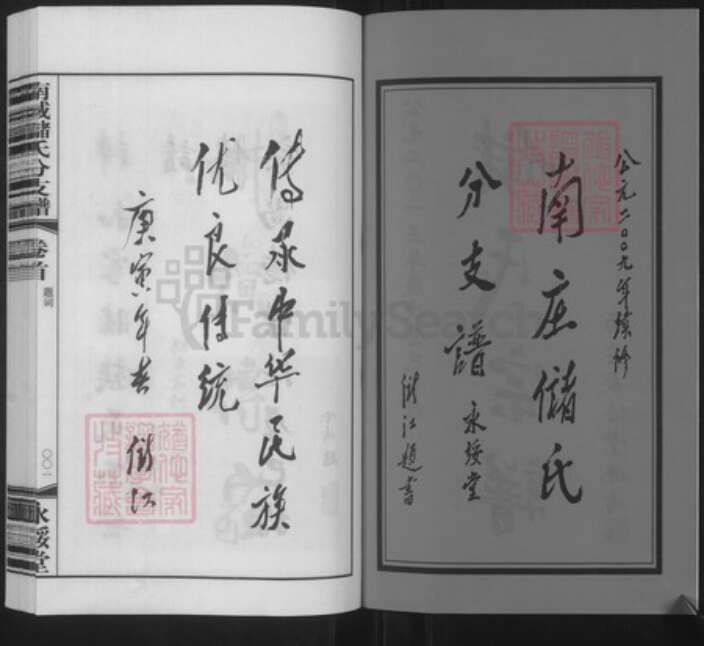 公元二00九年续修
南庄储氏
分支谱
永绥堂
储江题书
传承中华民族
优良传统
庚寅年春
储江
南城储氏分支谱
卷首
题词
00一
永绥堂
FamilySearch